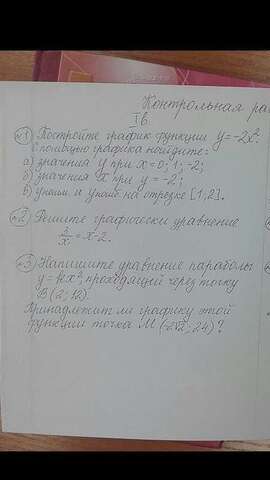 Контрольная ра
I в.
№1 Постройте график функции y=-2x².
С помощью графика найдите:
а) значения y при x=0; 1; -2;
б) значения x при y=-2;
в) yнаим. и yнаиб. на отрезке [1; 2].
№2 Решите графически уравнение
/x = x-2.
№3 Напишите уравнение параболы
y=kx², проходящей через точку
B(2; 12).
Принадлежит ли графику этой
функции точка M(-2√2; 24)?